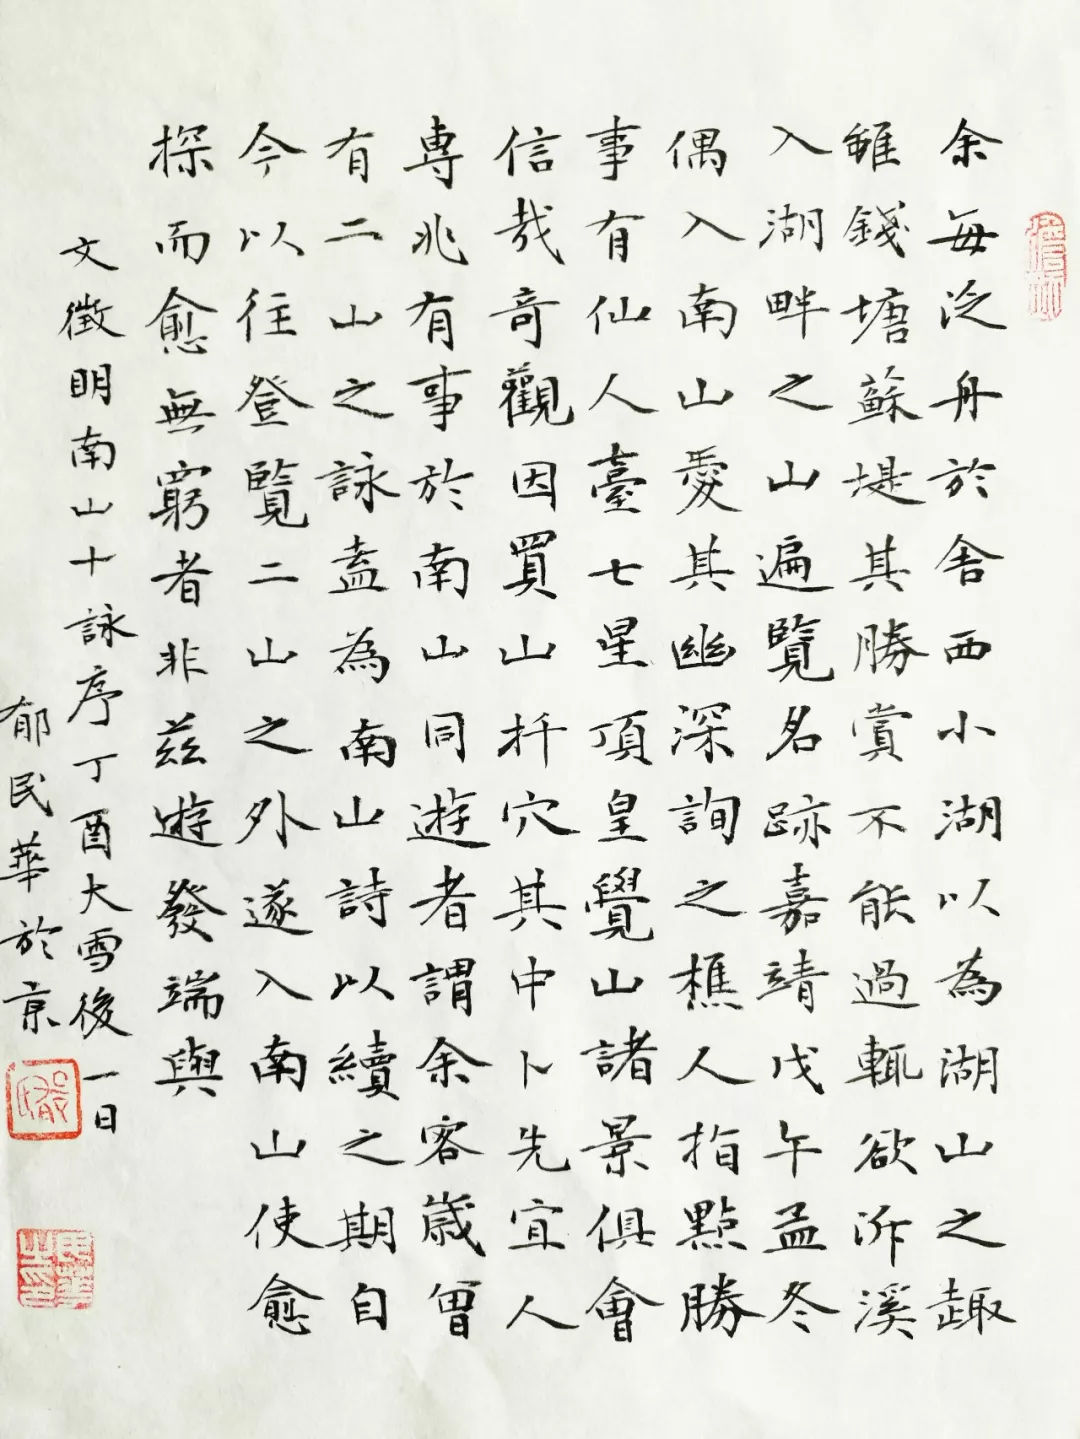 余每泛舟於舍西小湖以為湖山之趣
雖錢塘蘇堤其勝賞不能過輒欲泝溪
入湖畔之山遍覽名跡嘉靖戊午孟冬
偶入南山愛其幽深詢之樵人指點勝
事有仙人臺七星頂皇覺山諸景俱會
信哉奇觀因買山扦穴其中卜先宜人
專兆有事於南山同遊者謂余客歲曾
有二山之詠盍為南山詩以續之期自
今以往登覽二山之外遂入南山使愈
探而愈無窮者非茲遊發端與
文徵明南山十詠序丁酉大雪後一日
郁民華於京